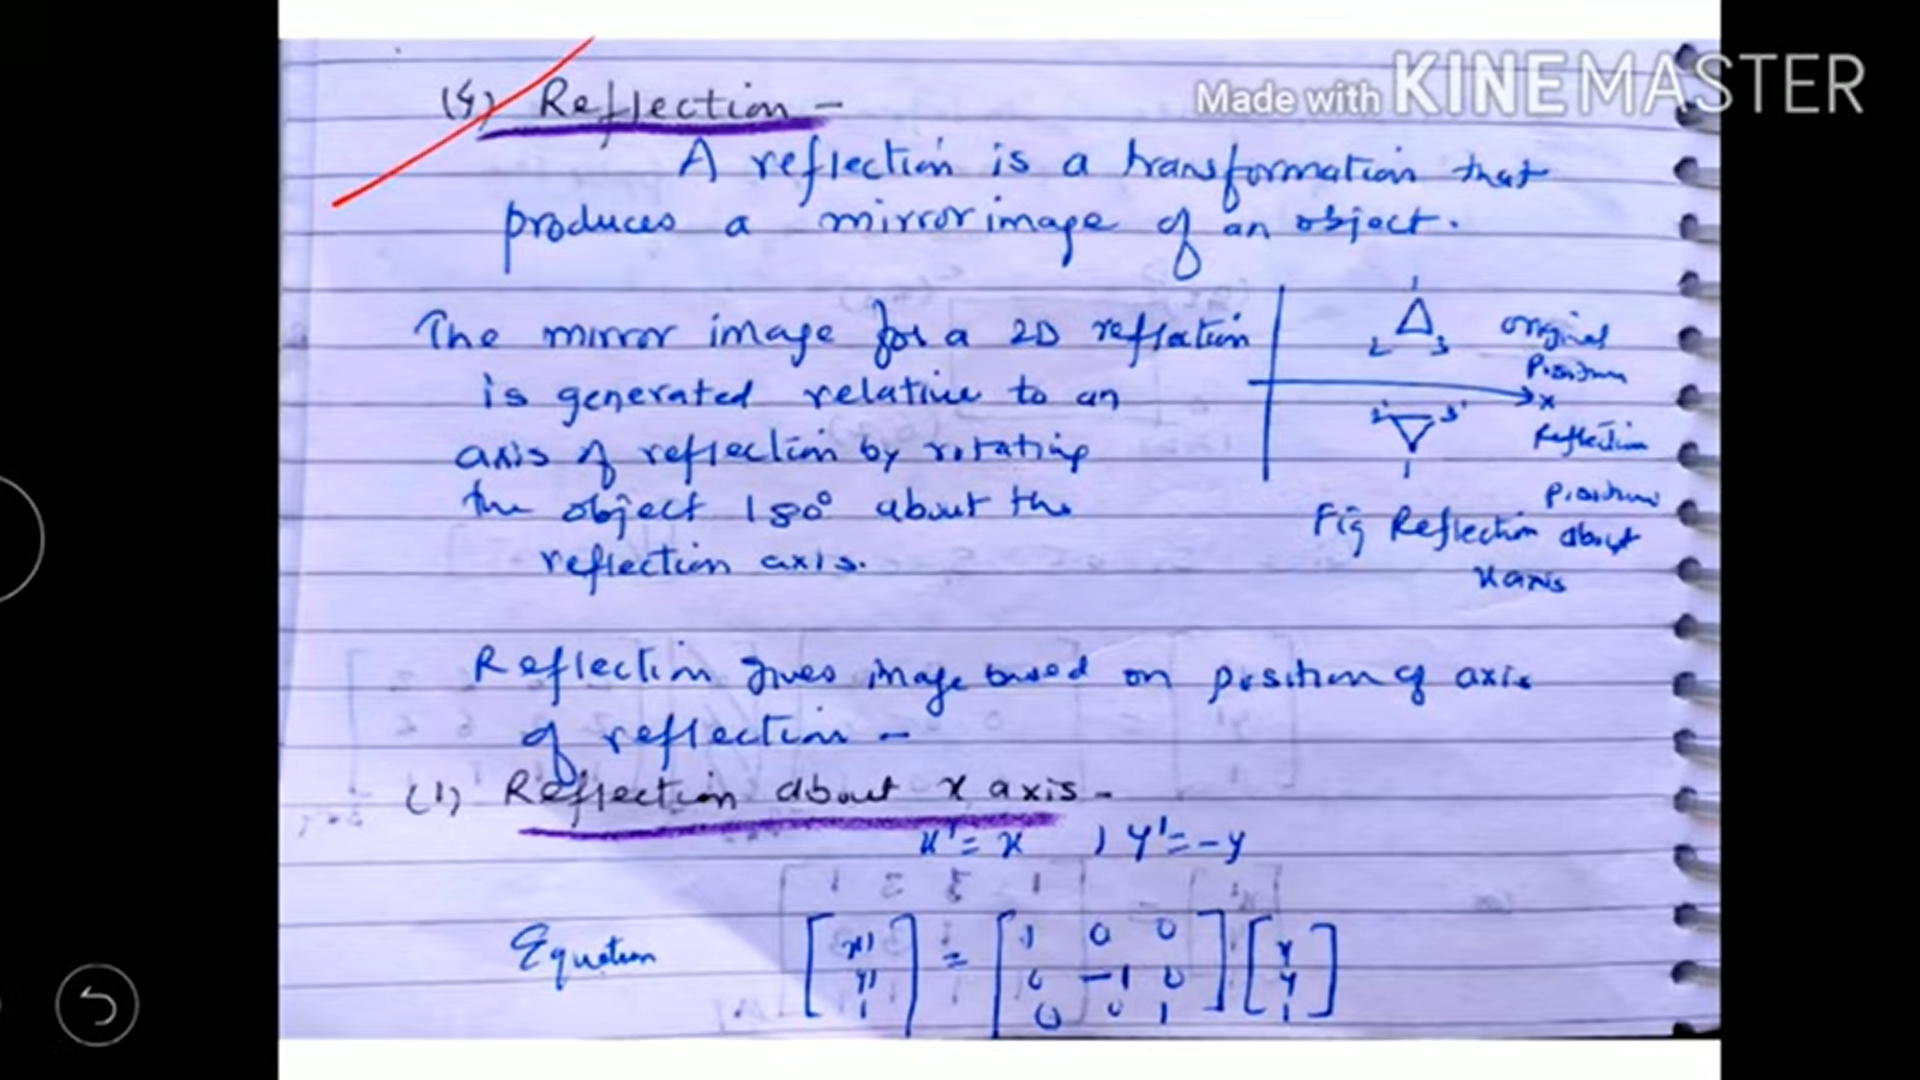 Made with KINEMASTER
(4) Reflection -
A reflection is a transformation that
produces a mirror image of an object.
The mirror image for a 2D reflection
is generated relative to an
axis of reflection by rotating
the object 180° about the
reflection axis.
1
2 3
Original
Position
x
2' 3'
1
Reflection
Position
Fig Reflection about
x axis
Reflection gives image based on position of axis
of reflection -
(1) Reflection about x axis -
x' = x , y' = -y
Equation [x' y' 1] = [1 0 0 0 -1 0 0 0 1] [x y 1]